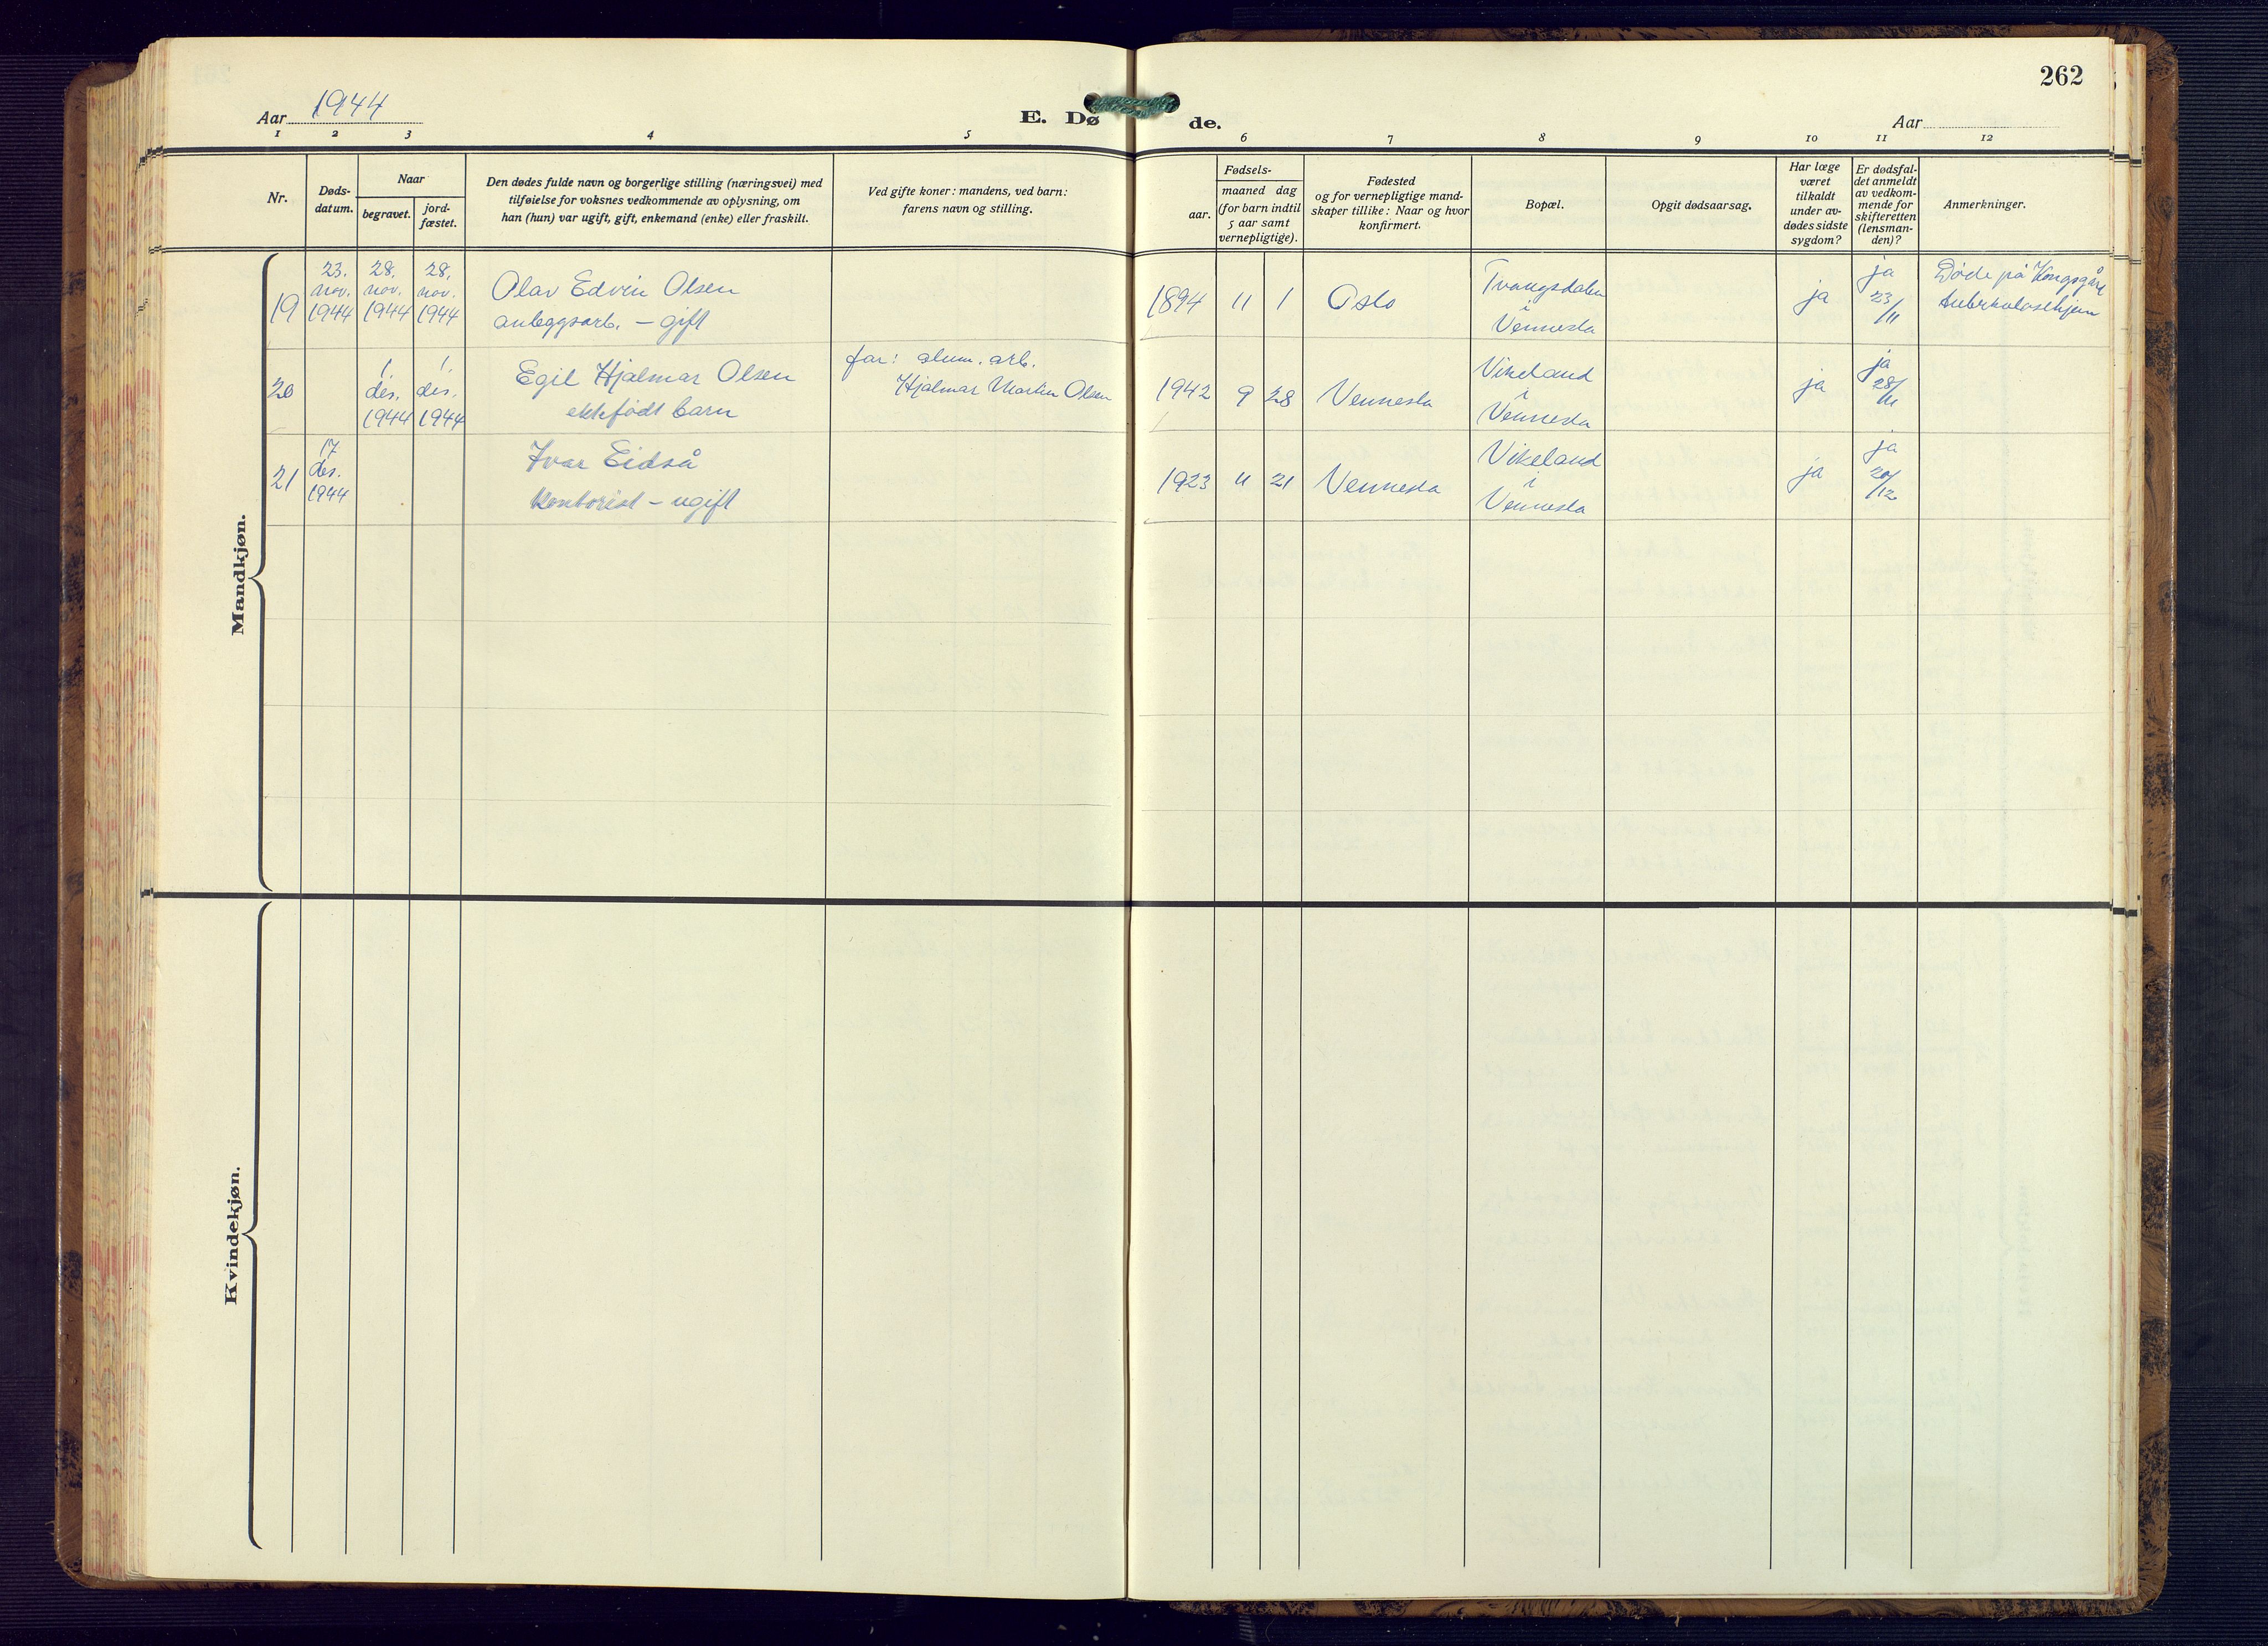 262
Aar 1944
E. Dø
de.
Aar
1 2 3 4 5 6 7 8 9 10 11 12
Nr.
Døds-
datum.
Naar
begravet.
jord-
fæstet.
Den dødes fulde navn og borgerlige stilling (næringsvei) med
tilføielse for voksnes vedkommende av oplysning, om
han (hun) var ugift, gift, enkemand (enke) eller fraskilt.
Ved gifte koner: mandens, ved barn:
farens navn og stilling.
Fødsels-
aar.
maaned dag
(for barn indtil
5 aar samt
vernepligtige).
Fødested
og for vernepligtige mand-
skaper tillike: Naar og hvor
konfirmert.
Bopæl.
Opgit dødsaarsag.
Har læge
været
tilkaldt
under av-
dødes sidste
sygdom?
Er dødsfal-
det anmeldt
av vedkom-
mende for
skifteretten
(lensman-
den)?
Anmerkninger.
Mandkjøn.
19
23.
nov.
1944
28.
nov.
1944
28.
nov.
1944
Olav Edvin Olsen
anleggsarb. – gift
1894 11 1 Oslo
Tvangsdalen
i
Vennesla
ja
ja
23/11
Døde på Kongsgård
tuberkulosehjem
20
1.
des.
1944
1.
des.
1944
Egil Hjalmar Olsen
ektefødt barn
far: alum. arb.
Hjalmar Martin Olsen
1942 9 28 Vennesla
Vikeland
i
Vennesla
ja
ja
28/11
21
17
des.
1944
Ivar Eidså
Kontorist – ugift
1923 11 21 Vennesla
Vikeland
i
Vennesla
ja
ja
20/12
Kvindekjøn.